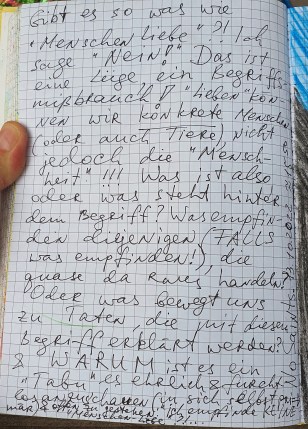 Gibt es so was wie
"Menschenliebe"?! Ich
sage "NEIN!" Das ist
eine Lüge, ein Begriffs-
mißbrauch!! "Lieben" kön-
nen wir konkrete Menschen
(oder auch Tiere) nicht
jedoch die "Mensch-
heit"!!! Was ist also
oder was steht hinter
dem Begriff? Was empfin-
den diejenigen (FALLS
was empfinden!), die
quase da raus handeln?
Oder was bewegt uns
zu Taten, die mit diesem
Begriff erklärt werden?
& WARUM ist es ein
"Tabu" es ehrlich & furcht-
los anzuschauen (in sich selbst
& offen zu gestehen: "Ich empfinde KEINE
Menschenliebe